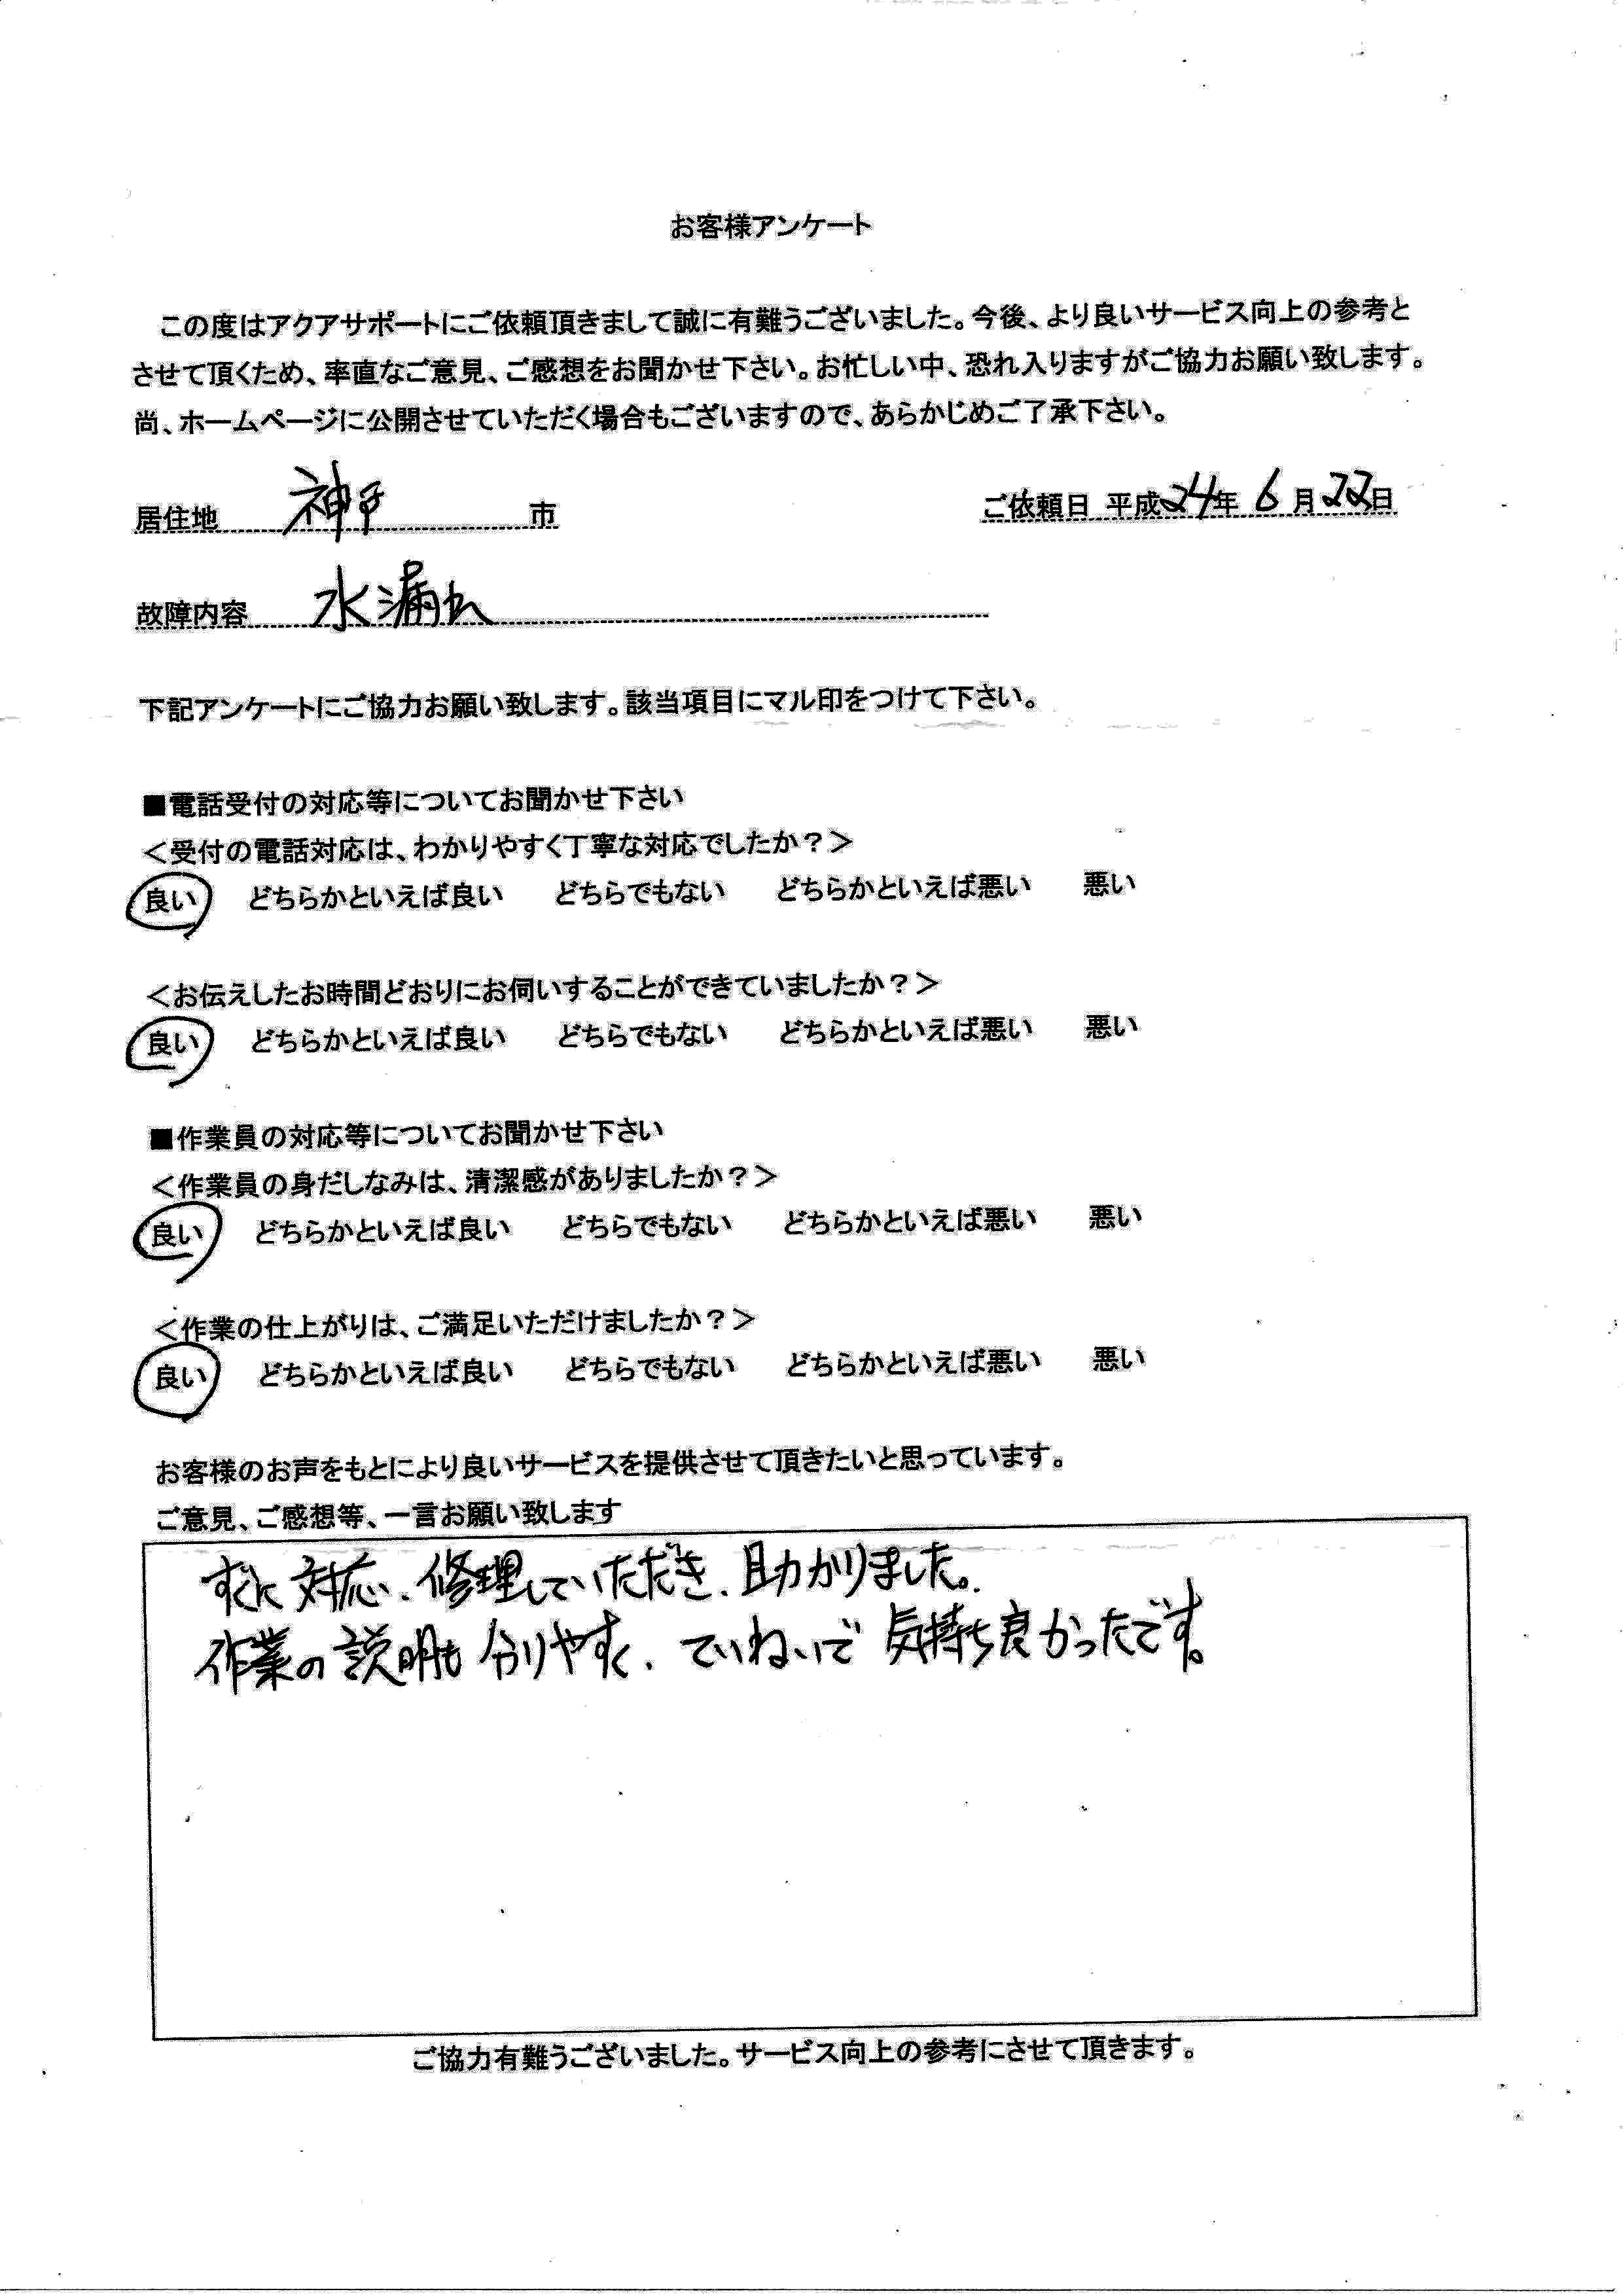 お客様アンケート
この度はアクアサポートにご依頼頂きまして誠に有難うございました。今後、より良いサービス向上の参考と
させて頂くため、率直なご意見、ご感想をお聞かせ下さい。お忙しい中、恐れ入りますがご協力お願い致します。
尚、ホームページに公開させていただく場合もございますので、あらかじめご了承下さい。
居住地 神戸 市 ご依頼日 平成24年 6月22日
故障内容 水漏れ
下記アンケートにご協力お願い致します。該当項目にマル印をつけて下さい。
■電話受付の対応等についてお聞かせ下さい
＜受付の電話対応は、わかりやすく丁寧な対応でしたか？＞
良い どちらかといえば良い どちらでもない どちらかといえば悪い 悪い
＜お伝えしたお時間どおりにお伺いすることができていましたか？＞
良い どちらかといえば良い どちらでもない どちらかといえば悪い 悪い
■作業員の対応等についてお聞かせ下さい
＜作業員の身だしなみは、清潔感がありましたか？＞
良い どちらかといえば良い どちらでもない どちらかといえば悪い 悪い
＜作業の仕上がりは、ご満足いただけましたか？＞
良い どちらかといえば良い どちらでもない どちらかといえば悪い 悪い
お客様のお声をもとにより良いサービスを提供させて頂きたいと思っています。
ご意見、ご感想等、一言お願い致します
すぐに対応、修理していただき、助かりました。
作業の説明も分りやすく、ていねいで気持ち良かったです。
ご協力有難うございました。サービス向上の参考にさせて頂きます。